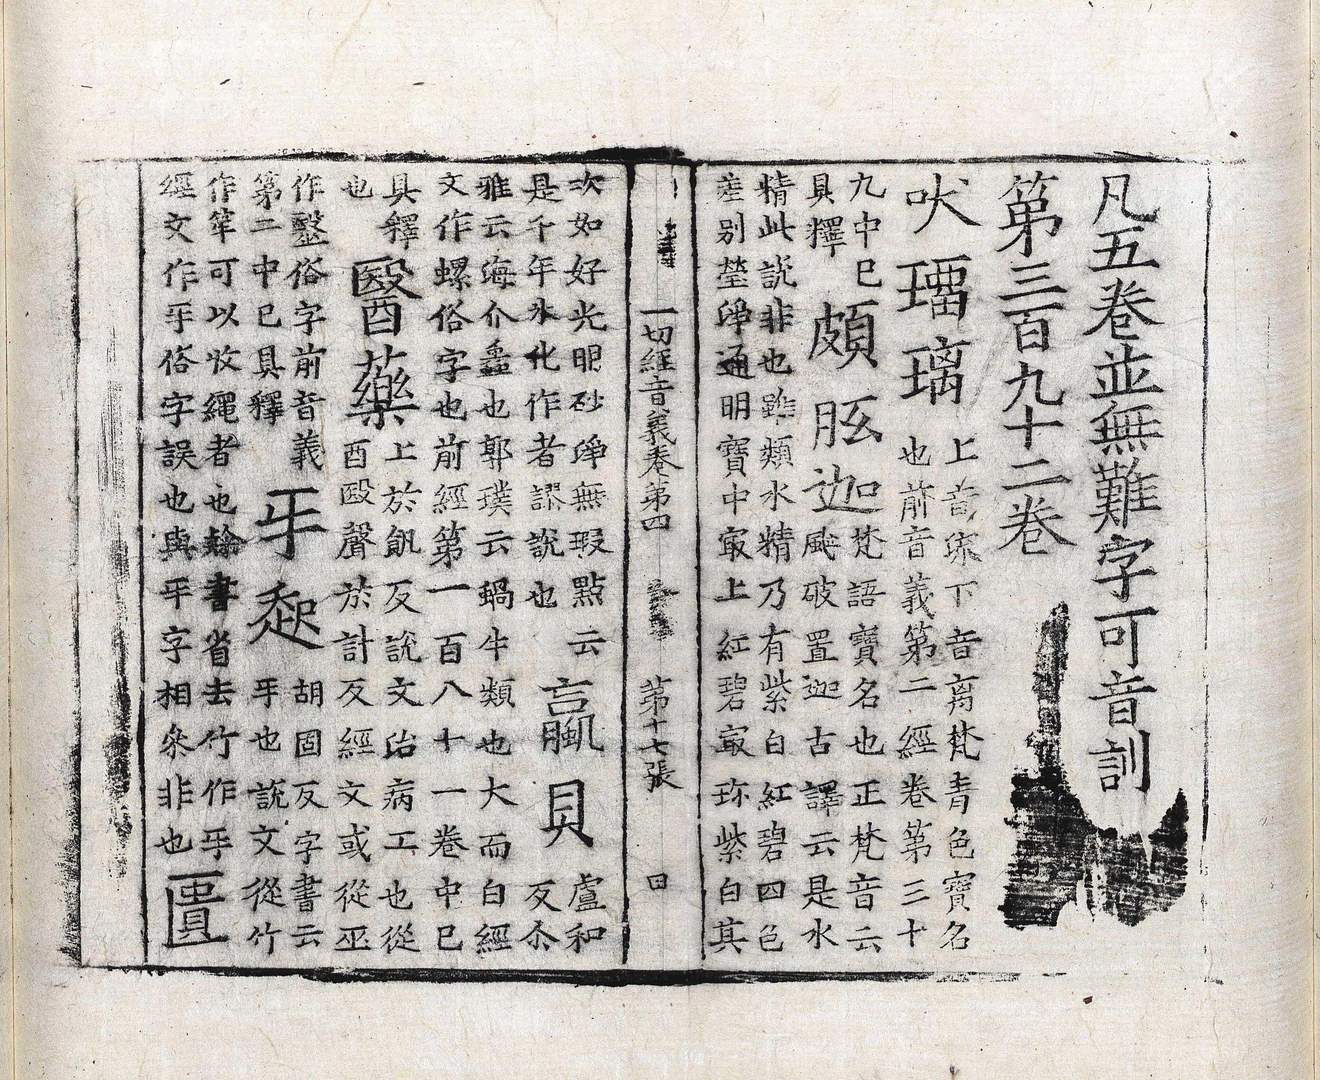 凡五卷並無難字可音訓
第三百九十二卷
吠瑠璃
上音疏下音离梵青色寶名
也前音義第二經卷第三十
九中已
具釋
頗胝迦
梵語寶名也正梵音云
颰破置迦古譯云是水
精此説非也雖類水精乃有紫白紅碧四色
差别瑩淨通明寶中㝡上紅碧㝡珎紫白其
一切經音義卷第四
第十七張
四
次如好光明砂淨無瑕點云
是千年氷化作者謬説也
蠃貝
盧和
反尒
雅云海介蟲也郭璞云蝸牛類也大而白經
文作螺俗字也前經第一百八十一卷中已
具釋
也
醫藥
上於飢反説文治病工也從
酉殹聲於計反經文或從巫
作毉俗字前音義
第二中已具釋
㸦
胡固反字書云
㸦也説文從竹
作䇘可以收繩者也書省去竹作㸦
經文作㸦俗字誤也與㸦字相糸非也
匱